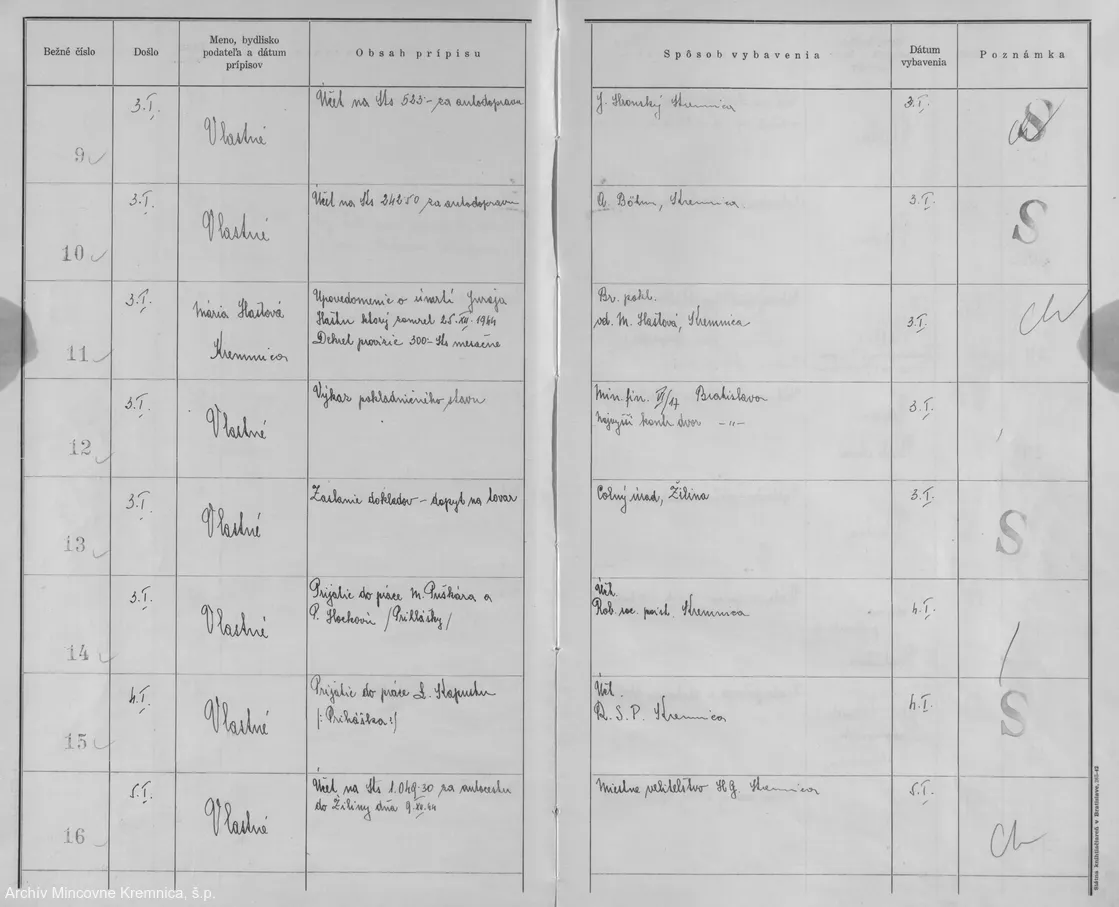 Bežné číslo
Došlo
Meno, bydlisko
podateľa a dátum
prípisov
Obsah prípisu
Spôsob vybavenia
Dátum
vybavenia
Poznámka
9
3.I.
Vlastné
Účet na Ks 523·- za autodopravu
J. Kremnica
3.I.
10
3.I.
Vlastné
Účet na Ks 242·50 za autodopravu
A. Böhm, Kremnica
3.I.
S
11
3.I.
Mária Haťtová
Kremnica
Upovedomenie o úmrtí Juraja
ktorý zomrel 25.XII.1944
Dekret provizie 300·- Ks mesačne
Br. pokl.
vd. M. Kremnica
3.I.
Ch
12
3.I.
Vlastné
Výkaz pokladničného stavu
Min. fin. Bratislava
Najvyšší kontr. dvor -"-
3.I.
13
3.I.
Vlastné
Zaslanie dokladov - dopyt na tovar
Colný úrad, Žilina
3.I.
S
14
3.I.
Vlastné
Prijatie do práce M. Puškára a
P. /Prihlášky/
Účt.
Rob. soc. poist. Kremnica
4.I.
15
4.I.
Vlastné
Prijatie do práce Kapustu
/: Prihláška :/
Účt.
R. S. P. Kremnica
4.I.
S
16
5.I.
Vlastné
Účet na Ks 1.049·30 za autocestu
do Žiliny dňa 9.XII.44
Miestne veliteľstvo HG Kremnica
5.I.
Ch
Štátna kníhtlačiareň v Bratislave,
Archív Mincovne Kremnica, š.p.